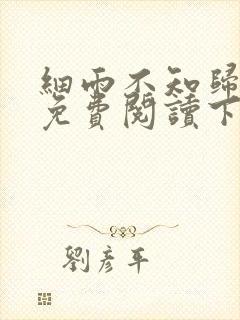 細雨不知歸
免費閱讀下
劉彥平